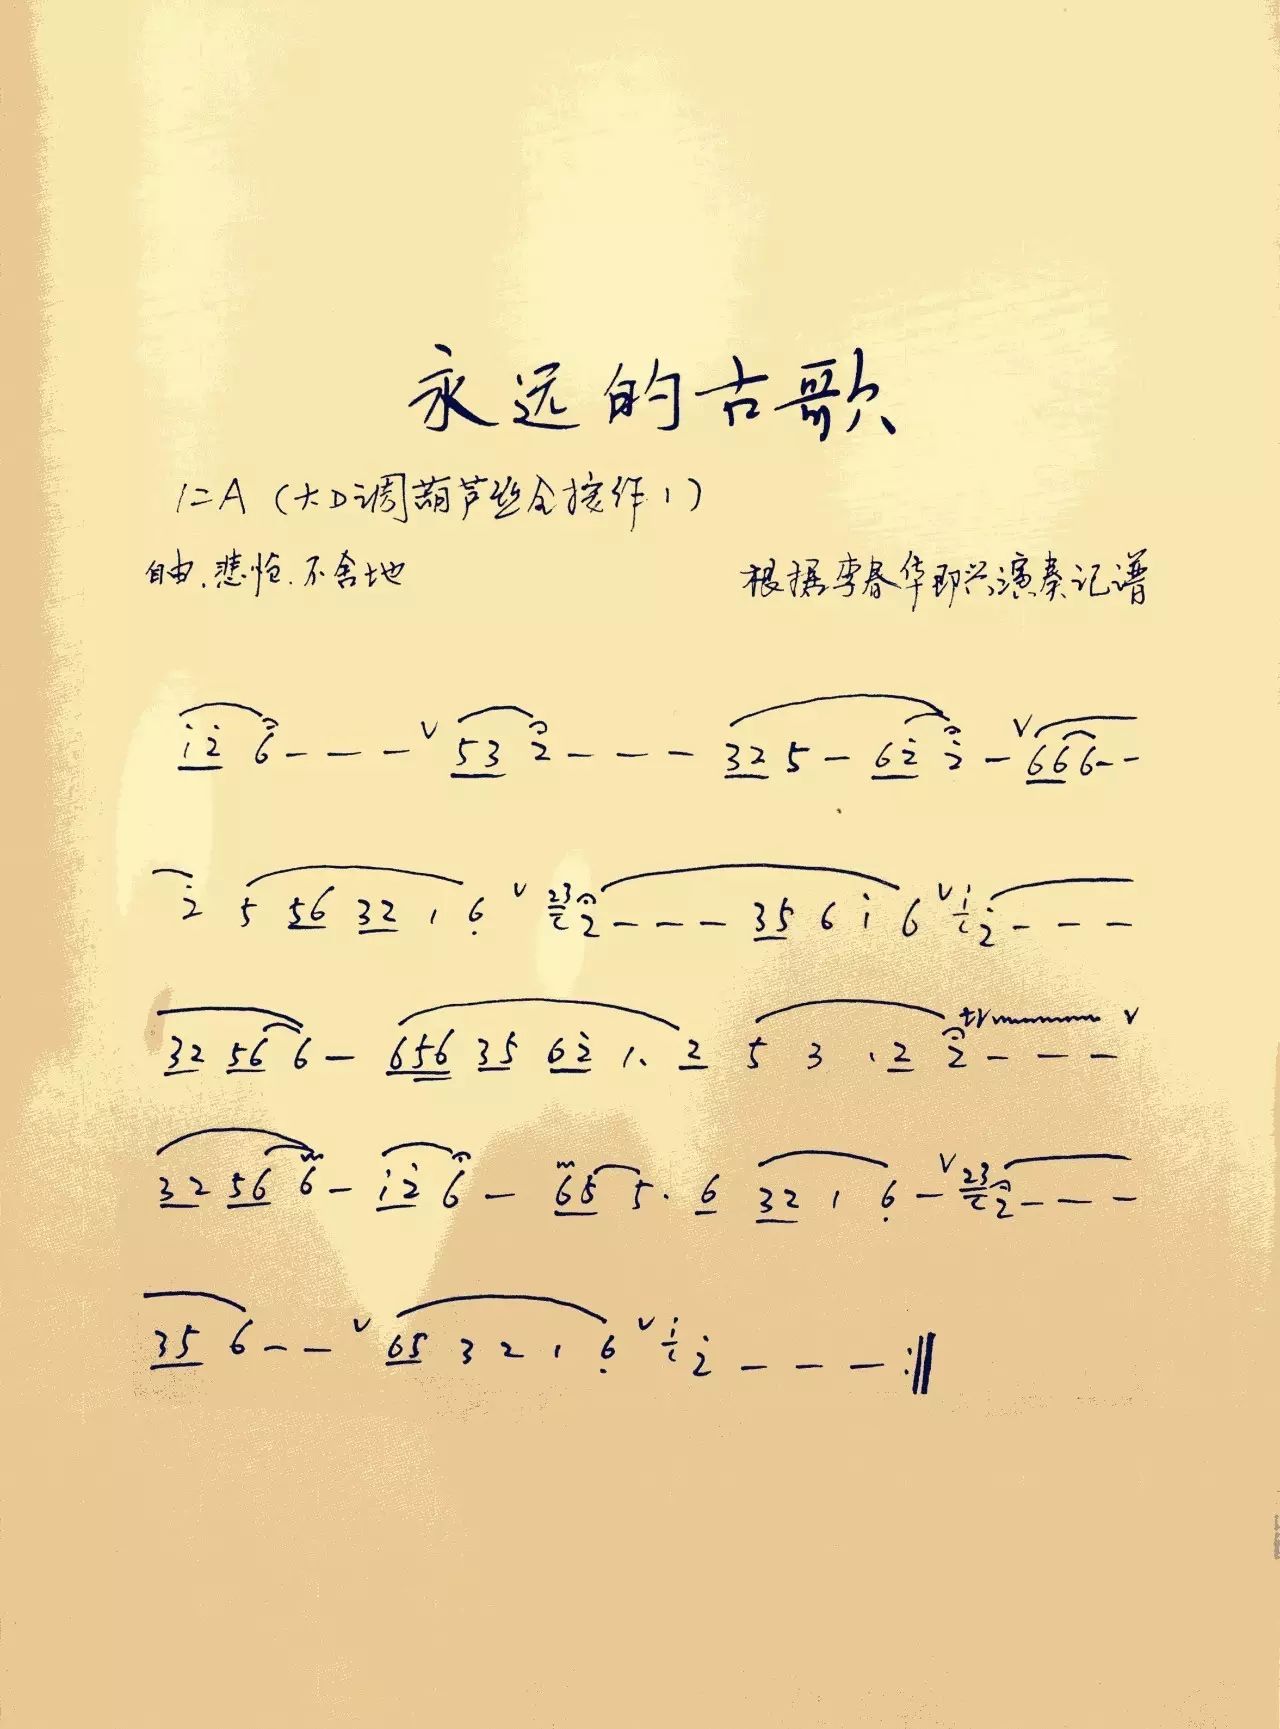 永远的古歌
1=A（大D调葫芦丝全按作1）
自由、悲怆、不舍地
根据李春华即兴演奏记谱
i̇ 2̇ 6 - - - ∨ 5 3 2 - - - 3 2 5 - 6 2̇ 2̇ - ∨ 6 6 6 - -
2̇ 5 5 6 3 2 1 6̣ ∨ 23 2 - - - 3 5 6 i̇ 6 ∨ i̇ 2̇ - - -
3 2 5 6 6 - 6 5 6 3 5 6 2̇ 1. 2 5 3 . 1 2 2 tr - - - ∨
3 2 5 6 6 - i̇ 2̇ 6 - 6 5 5. 6 3 2 1 6̣ - ∨ 23 2 - - -
3 5 6 - - ∨ 6 5 3 2 1 6̣ ∨ i̇ 2̇ - - - :‖